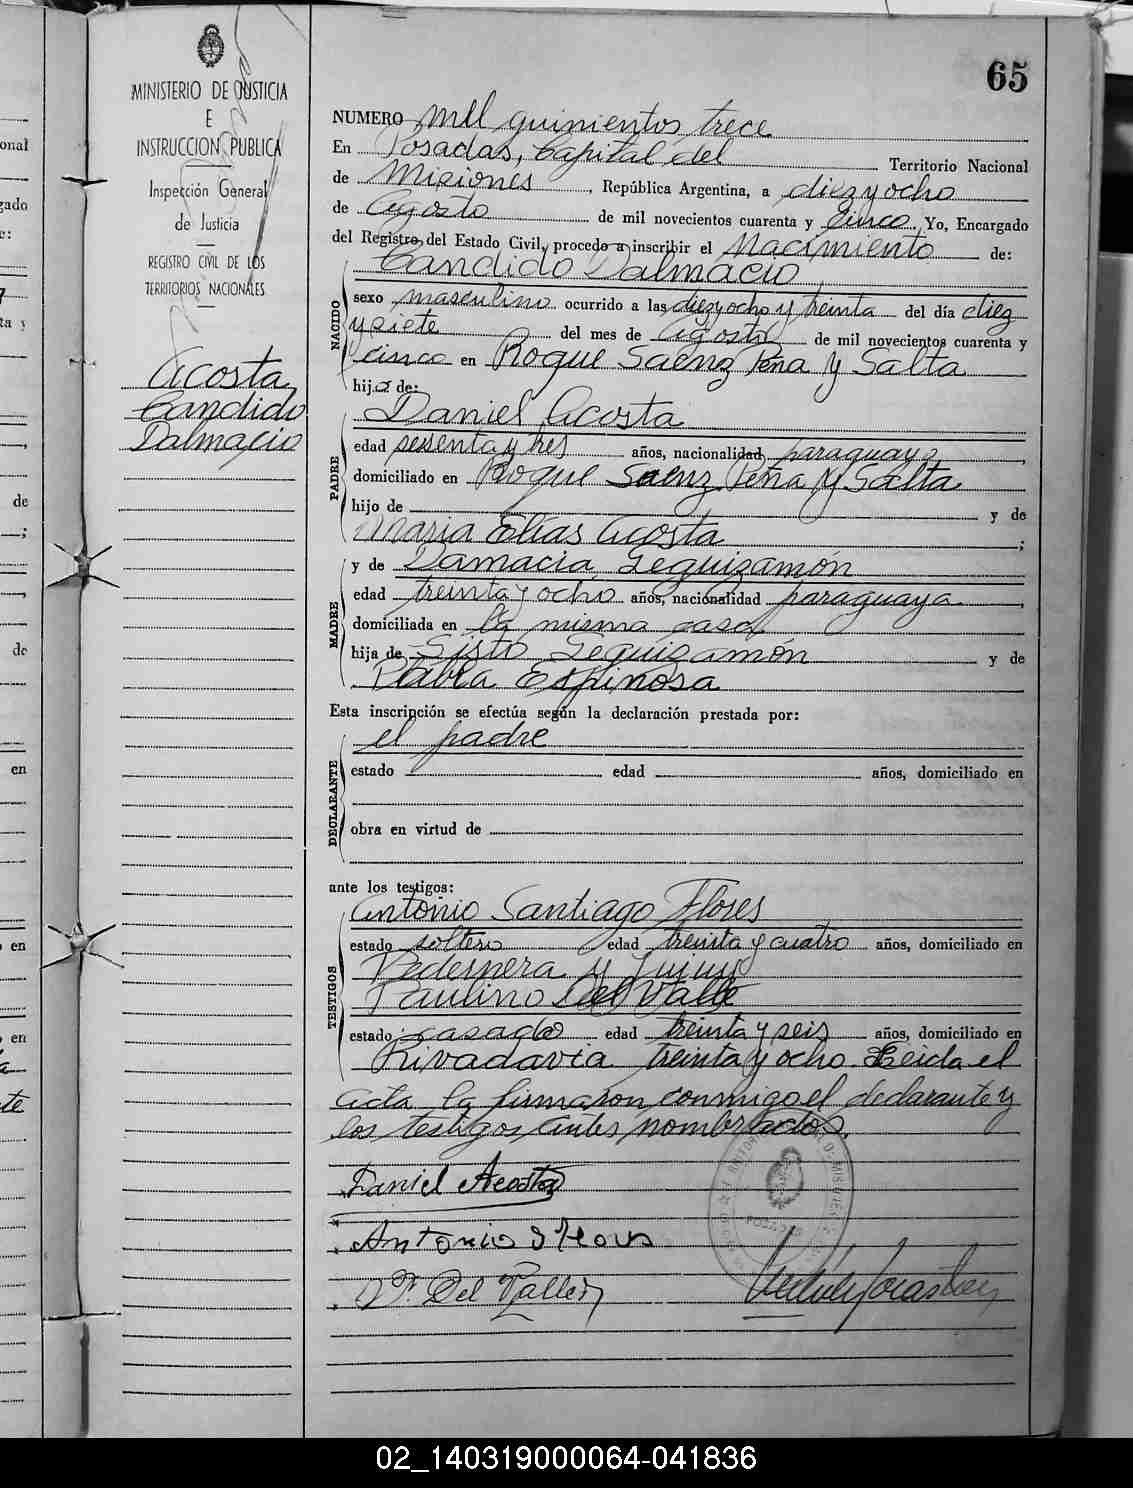 65
MINISTERIO DE JUSTICIA
E
INSTRUCCION PUBLICA
Inspección General
de Justicia
REGISTRO CIVIL DE LOS
TERRITORIOS NACIONALES
Acosta
Candido
Dalmacio
NUMERO mil quinientos trece
En Posadas, Capital del Territorio Nacional
de Misiones, República Argentina, a diez y ocho
de Agosto de mil novecientos cuarenta y cinco, Yo, Encargado
del Registro del Estado Civil, procedo a inscribir el Nacimiento de:
NACIDO
Candido Dalmacio
sexo masculino ocurrido a las diez y ocho y treinta del día diez
y siete del mes de Agosto de mil novecientos cuarenta y
cinco en Roque Saenz Peña y Salta
hijo de:
PADRE
Daniel Acosta
edad sesenta y tres años, nacionalidad paraguaya,
domiciliado en Roque Saenz Peña y Salta
hijo de y de
Maria Elias Acosta;
MADRE
y de Damacia Leguizamón
edad treinta y ocho años, nacionalidad paraguaya,
domiciliada en la misma casa
hija de Sisto Leguizamón y de
Pabla Espinosa
Esta inscripción se efectúa según la declaración prestada por:
DECLARANTE
el padre
estado edad años, domiciliado en
obra en virtud de
ante los testigos:
TESTIGOS
Antonio Santiago Flores
estado soltero edad treinta y cuatro años, domiciliado en
Pedernera y Jujuy
Paulino Del Valle
estado casado edad treinta y seis años, domiciliado en
Rivadavia treinta y ocho. Leida el
Acta la firmaron conmigo el declarante y
los testigos antes nombrados.
Daniel Acosta
Antonio S Flores
P. Del Valle
POSADAS
02_140319000064-041836